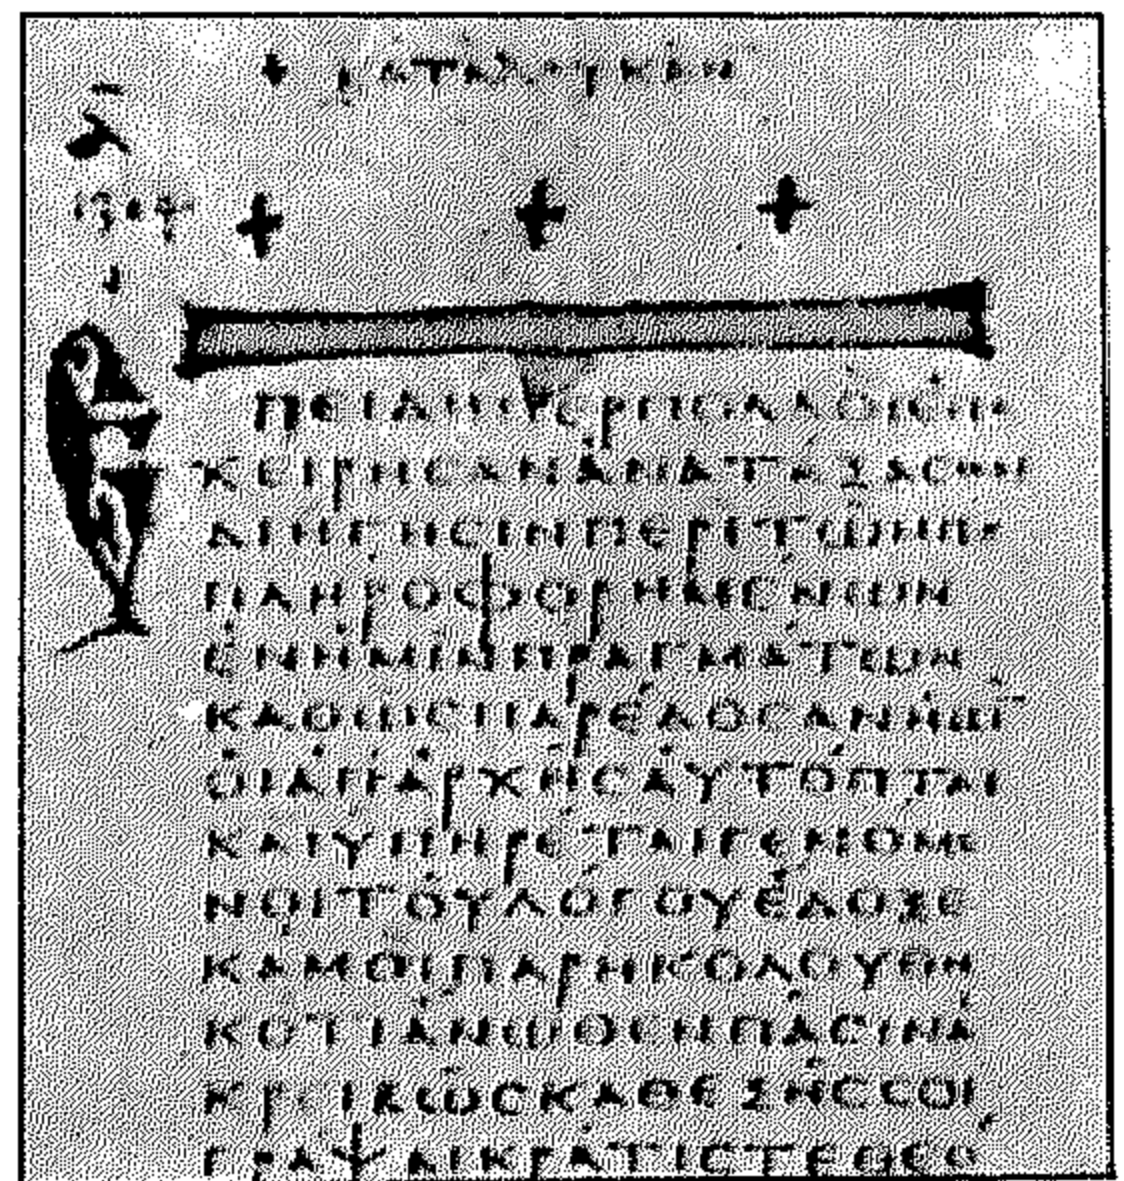 + κατα λουκαν
ΕΠΕΙΔΗΠΕΡΠΟΛΛΟΙΕΠΕ
ΧΕΙΡΗϹΑΝΑΝΑΤΑΞΑϹΘΑΙ
ΔΙΗΓΗϹΙΝΠΕΡΙΤΩΝΠΕ
ΠΛΗΡΟΦΟΡΗΜΕΝΩΝ
ΕΝΗΜΙΝΠΡΑΓΜΑΤΩΝ
ΚΑΘΩϹΠΑΡΕΔΟϹΑΝΗΜΙ̅
ΟΙΑΠΑΡΧΗϹΑΥΤΟΠΤΑΙ
ΚΑΙΥΠΗΡΕΤΑΙΓΕΝΟΜΕ
ΝΟΙΤΟΥΛΟΓΟΥΕΔΟΞΕ
ΚΑΜΟΙΠΑΡΗΚΟΛΟΥΘΗ
ΚΟΤΙΑΝΩΘΕΝΠΑϹΙΝΑ
ΚΡΙΒΩϹΚΑΘΕΞΗϹϹΟΙ
ΓΡΑΨΑΙΚΡΑΤΙϹΤΕΘΕΟ